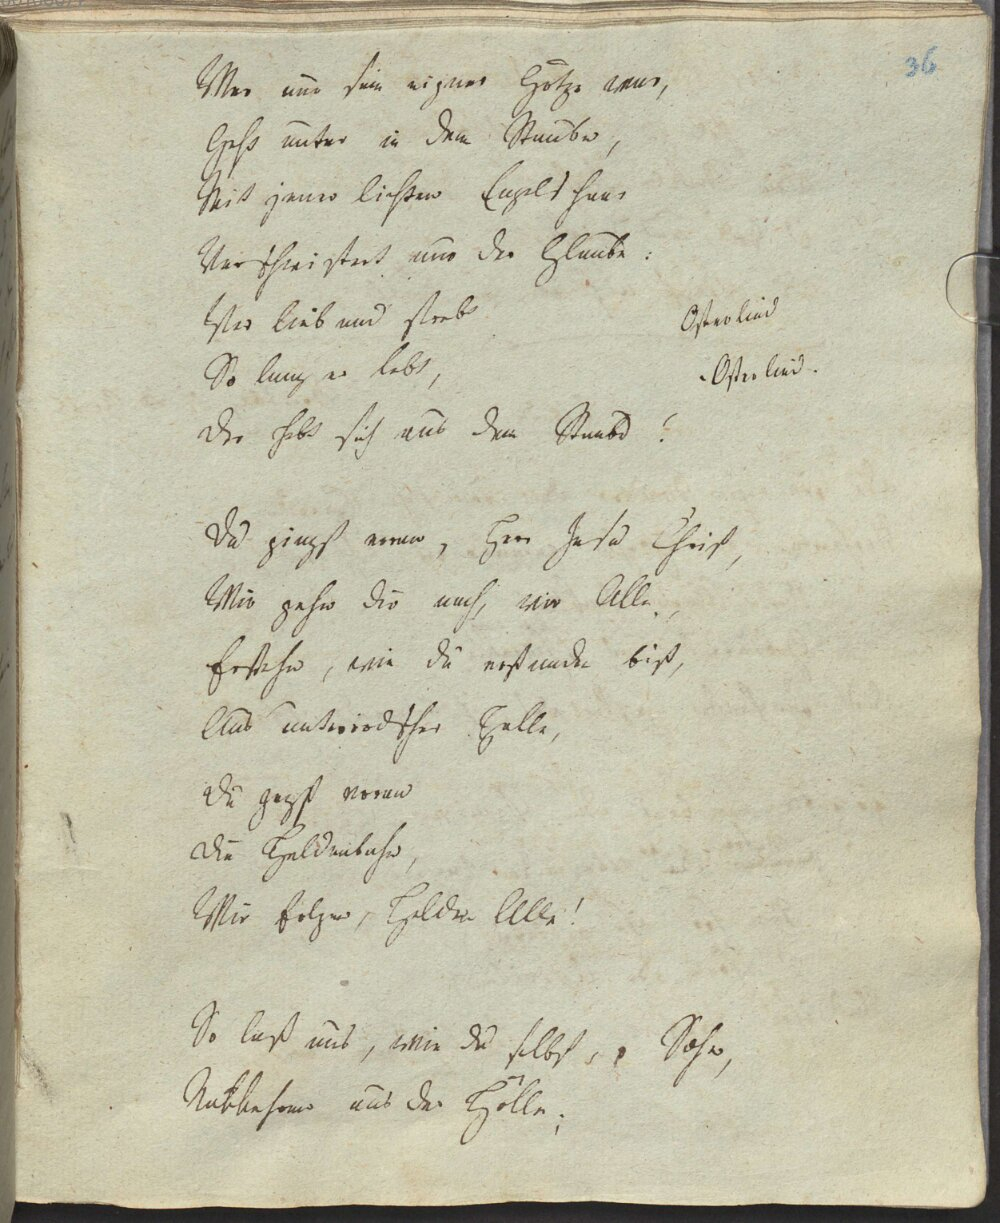 36
Wer nur sein eigner Götze war,
Geht unter in dem Staube,
Mit jener lichten Engelschaar
Verschwistert nur der Glaube:
Wer liebend strebt
So lang er lebt,
Der hebt sich aus dem Staube!
Osterlied
Osterlied.
Du gingst voran, Herr Jesu Christ,
Wir gehn dir nach, wir Alle,
Erstehn, wie du erstanden bist,
Aus unterird'scher Halle,
Du gehst voran
Die Heldenbahn,
Wir folgen, Helden Alle!
So laß uns, wie du selbst, o Sohn,
aus der Hölle,